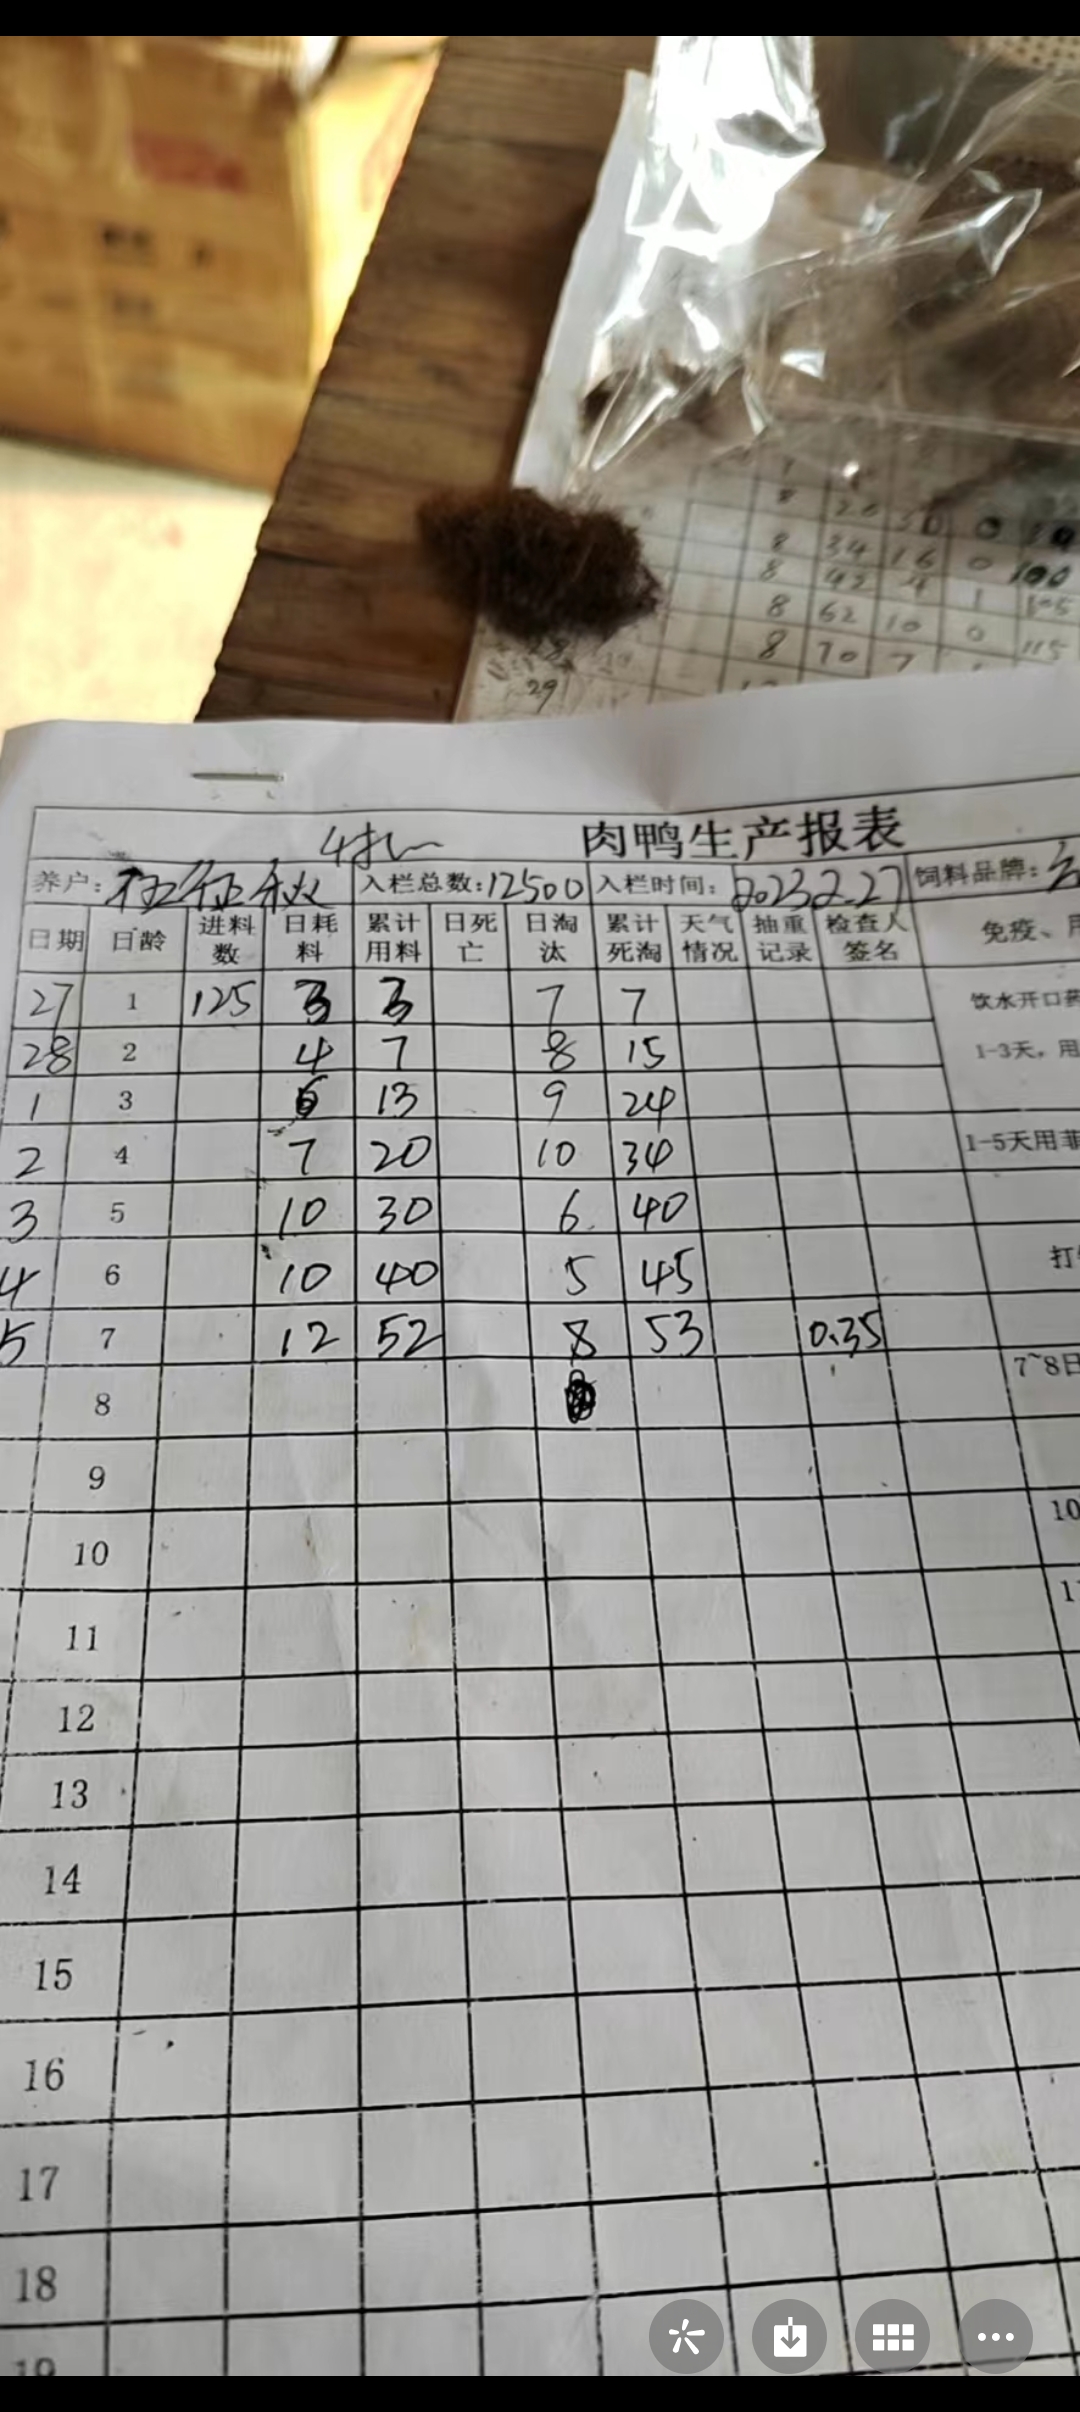 8 20 30 0
8 34 16 0 100
8 42 4 1 105
8 62 10 0 115
8 70 7
29
肉鸭生产报表
养户: 入栏总数:12500 入栏时间: 2023 2.27 饲料品牌:
日期 日龄 进料数 日耗料 累计用料 日死亡 日淘汰 累计死淘 天气情况 抽重记录 检查人签名 免疫、
27 1 125 3 3 7 7 饮水开口药
28 2 4 7 8 15 1-3天,用
1 3 6 13 9 24
2 4 7 20 10 34 1-5天用
3 5 10 30 6 40
4 6 10 40 5 45 打
5 7 12 52 8 53 0.35
8 7~8日
9
10 10
11 11
12
13
14
15
16
17
18
19